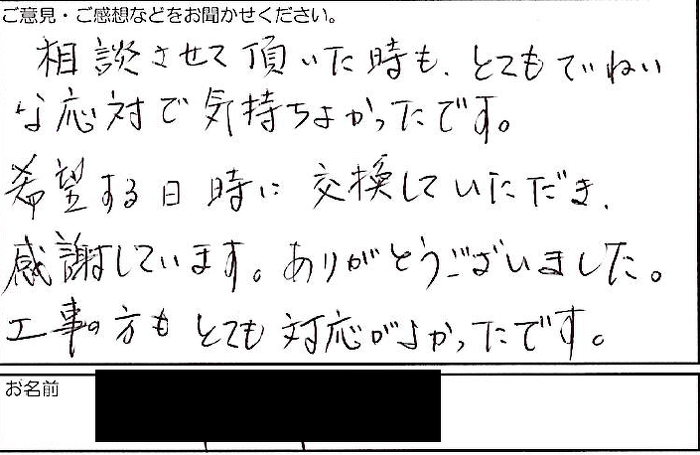 ご意見・ご感想などをお聞かせください。
相談させて頂いた時も、とてもていねい
な応対で気持ちよかったです。
希望する日時に交換していただき、
感謝しています。ありがとうございました。
工事の方もとても対応がよかったです。
お名前